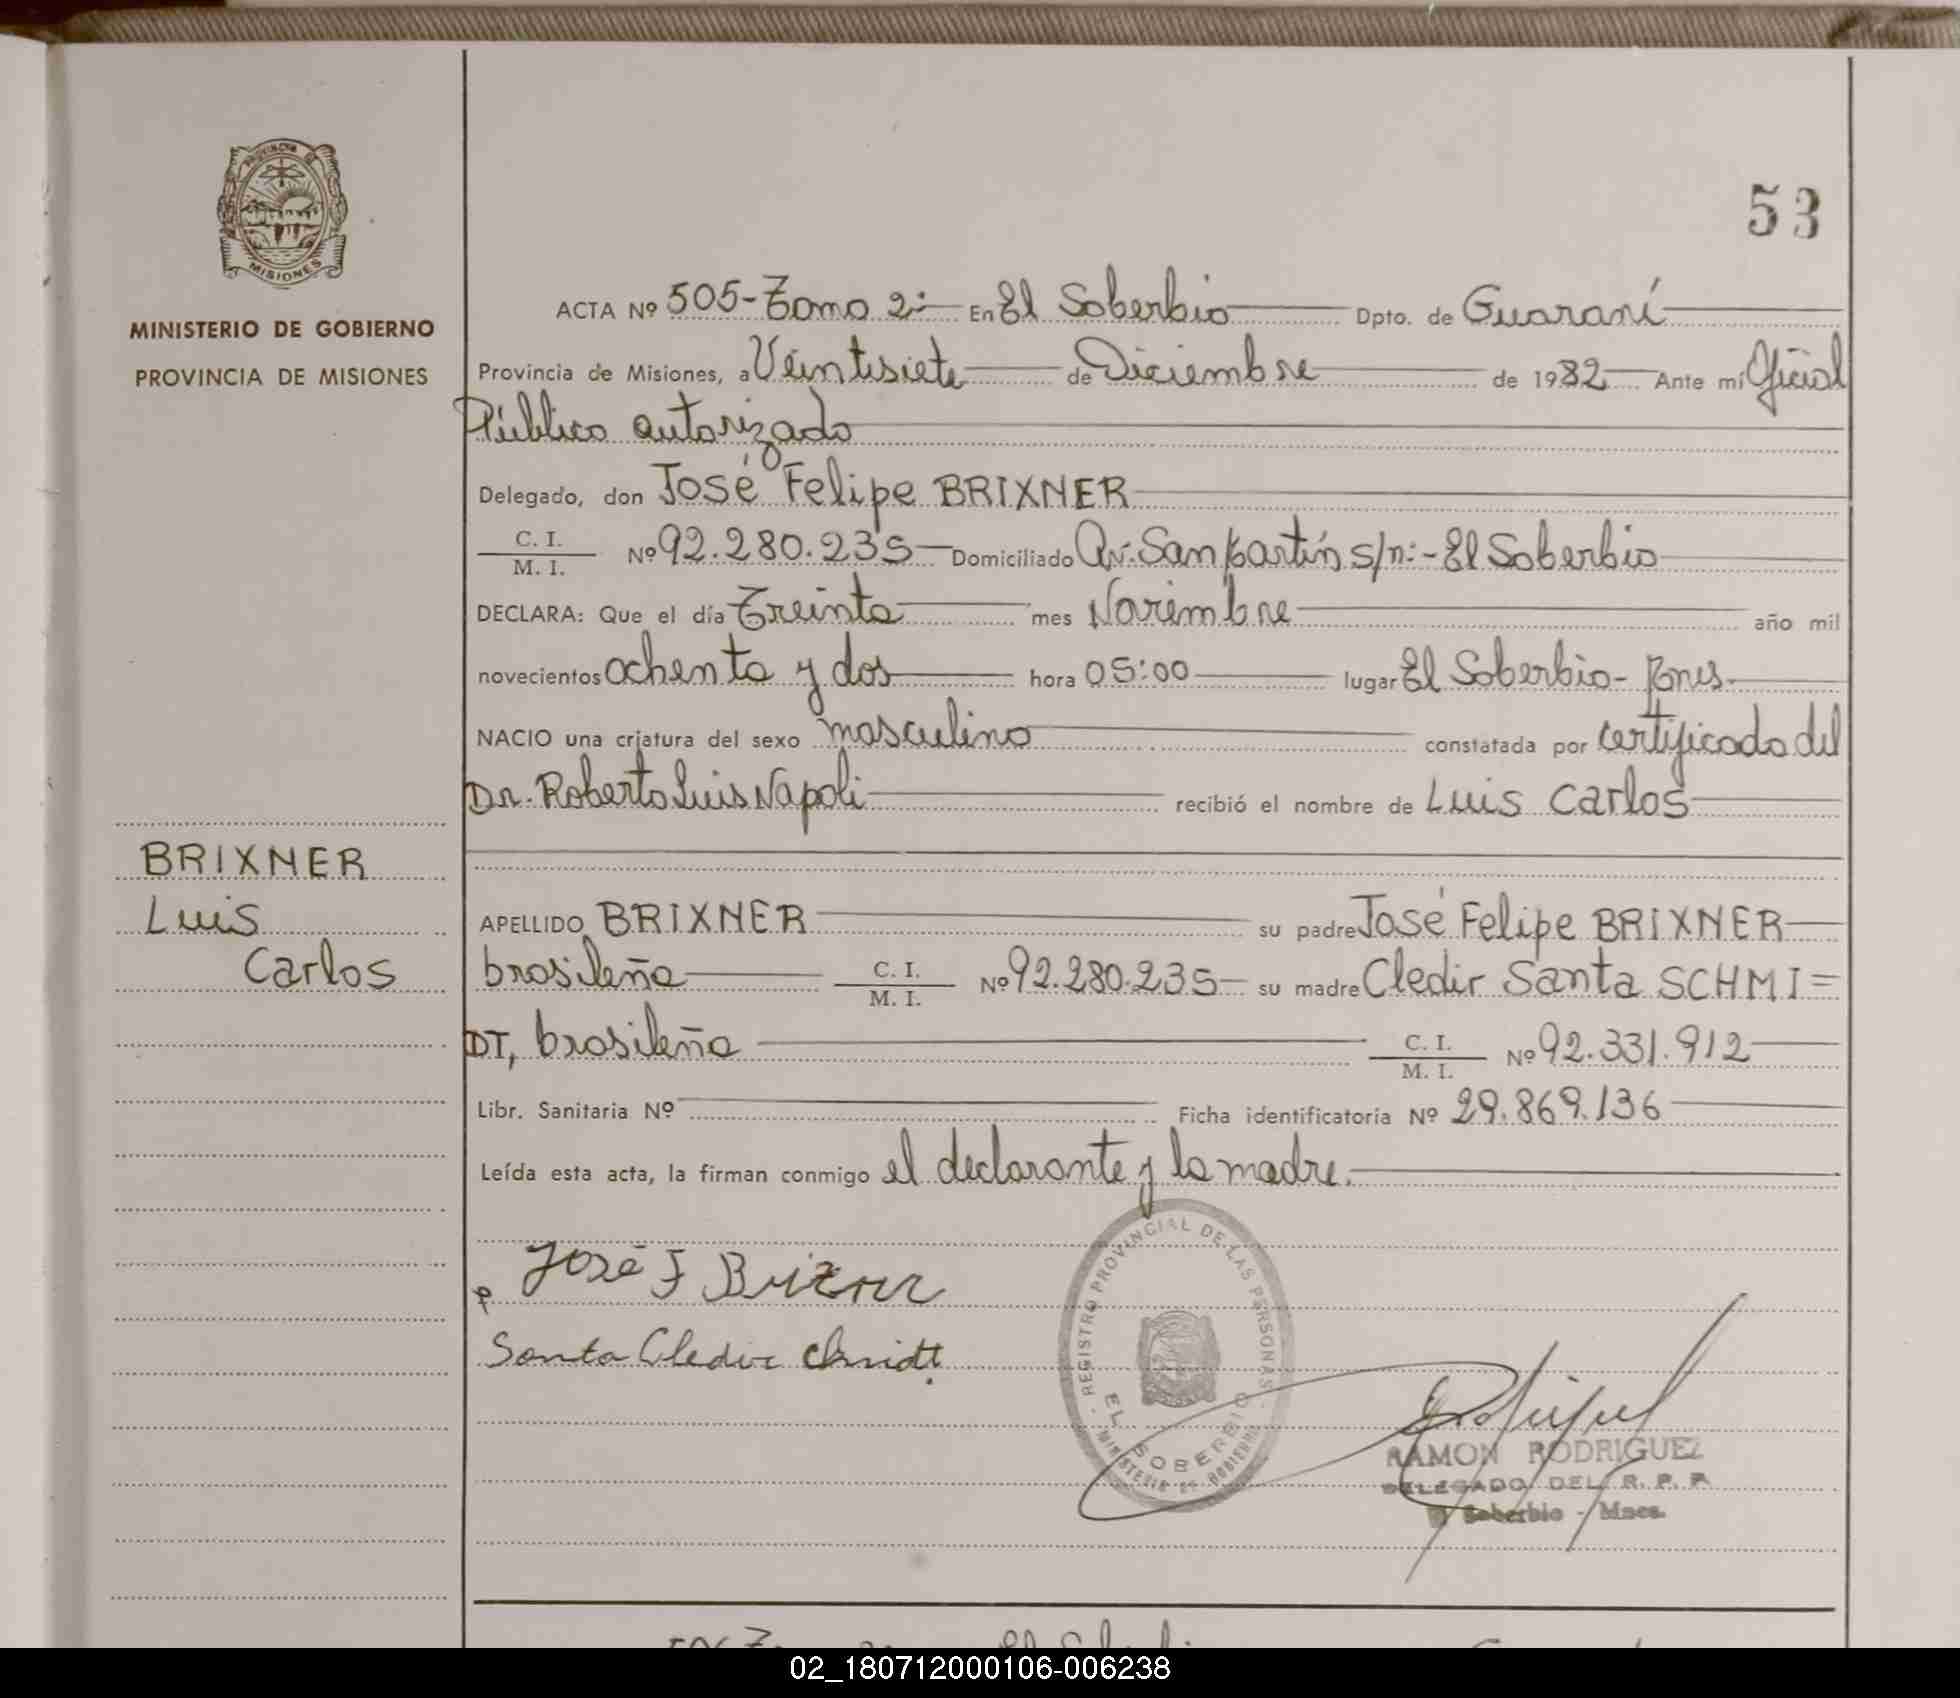 53
PROVINCIA DE
MISIONES
MINISTERIO DE GOBIERNO
PROVINCIA DE MISIONES
ACTA Nº 505-Tomo 2º En El Soberbio Dpto. de Guaraní
Provincia de Misiones, a Veintisiete de Diciembre de 1982 Ante mí Oficial
Público autorizado
Delegado, don José Felipe BRIXNER
C. I.
M. I. Nº 92.280.235 Domiciliado Av. San Martín s/nº - El Soberbio
DECLARA: Que el día Treinta mes Noviembre año mil
novecientos ochenta y dos hora 05:00 lugar El Soberbio - Mnes.
NACIO una criatura del sexo masculino constatada por certificado del
Dr. Roberto Luis Napoli recibió el nombre de Luis Carlos
BRIXNER
Luis
Carlos
APELLIDO BRIXNER su padre José Felipe BRIXNER
brasileña C. I.
M. I. Nº 92.280.235 su madre Cledir Santa SCHMI=
DT, brasileña C. I.
M. I. Nº 92.331.912
Libr. Sanitaria Nº Ficha identificatoria Nº 29.869.136
Leída esta acta, la firman conmigo el declarante y la madre.
José F Brixner
Santa Cledir chmidt.
REGISTRO PROVINCIAL DE LAS PERSONAS
EL SOBERBIO
MINISTERIO DE GOBIERNO
RAMON RODRIGUEZ
DELEGADO DEL R. P. P.
El Soberbio - Mnes.
02_180712000106-006238